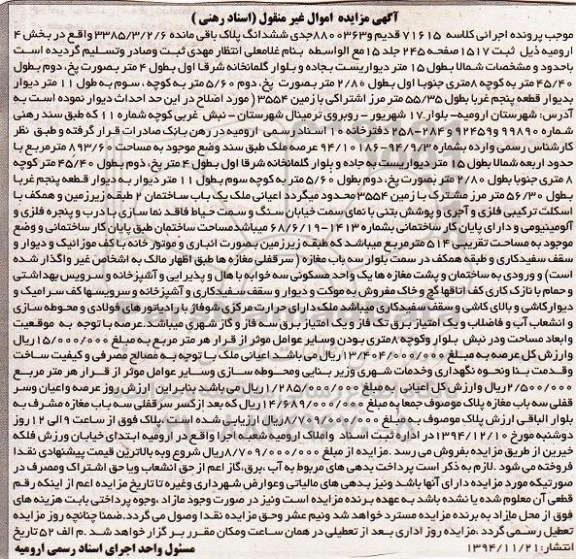 آگهی مزایده اموال غیر منقول (اسناد رهنی)
موجب پرونده اجرائی کلاسه ۷۱۶۱۵ قدیم و۸۸۰۰۳۶۳جدی ششدانگ پلاک باقی مانده ۳۳۸۵/۳/۲/۶ واقع در بخش ۴
ارومیه ذیل ثبت ۱۵۱۷ صفحه ۲۴۵ جلد ۱۵ مع الواسطه بنام غلامعلی انتظار مهدی ثبت وصادر وتسلیم گردیده است
باحدود و مشخصات شمالا بطول ۱۵ متر دیواریست بجاده و بلوار گلمانخانه شرقا اول بطول ۴ متر بصورت پخ، دوم بطول
۴۵/۴۰ متر به کوچه ۸متری جنوبا اول بطول ۲/۸۰ متر بصورت پخ، دوم ۵/۶۰ متر به کوچه ، سوم به طول ۱۱ متر دیوار
بدیوار قطعه پنجم غربا بطول ۵۵/۳۵ متر مرز اشتراکی با زمین ۳۵۵۴ ( مورد اصلاح در این حد احداث دیوار نموده است به
آدرس: شهرستان ارومیه- بلوار ۱۷ شهریور - روبروی ترمینال شهرستان - نبش غربی کوچه شماره ۱۱ که طبق سند رهنی
شماره ۹۹۸۹۰ و۹۲۴۵۹-۲۸۴-۲۵۸ دفترخانه ۱۰ اسناد رسمی ارومیه در رهن بانک صادرات قرار گرفته و طبق نظر
کارشناس رسمی وارده بشماره ۹۴/۹/۳-۹۴/۱۰۱۸۶ عرصه ملک طبق سند وضع موجود به مساحت ۸۹۳/۶۰ مترمربع با
حدود اربعه شمالا بطول ۱۵ متر دیواریست به جاده و بلوار گلمانخانه شرقا اول بطول ۴ متر پخ، دوم بطول ۴۵/۴۰ متر کوچه
۸ متری جنوبا بطول ۲/۸۰ متر بصورت پخ، دوم بطول ۵/۶۰ متر به کوچه سوم بطول ۱۱ متر دیوار بدیوار قطعه پنجم غربا
بطول ۵۶/۳۰ متر مرز مشترک با زمین ۳۵۵۴ محدود میگردد اعیانی ملک یک باب ساختمان ۲ طبقه زیرزمین و همکف با
اسکلت ترکیبی فلزی و آجری و پوشش بتنی با نمای سمت خیابان سنگ و سمت حیاط فاقد نما سازی با درب و پنجره فلزی و
آلومینیومی و دارای پایان کار ساختمانی بشماره ۱۴۱۳-۶۸/۶/۱۹ میباشدمساحت ساختمان طبق پایان کار ساختمانی و وضع
موجود به مساحت تقریب ۵۱۴ مترمربع میباشد که طبقه زیرزمین بصورت انباری و موتور خانه با کف موزائیک و دیوار و
سقف سفیدکاری و طبقه همکف در سمت بلوار سه باب مغازه ( سرقفلی مغازه ها طبق اظهار مالک به اشخاص غیر واگذار شده
است) و ورودی به ساختمان و پشت مغازه ها یک واحد مسکونی سه خوابه با هال و پذیرایی و آشپزخانه و سرویس بهداشتی
و حمام با نازک کاری کف اتاقها گچ و خاک مفروش به موکت و دیوار و سقف سفیدکاری و آشپزخانه و سرویسها کف سرامیک و
دیوار کاشی و بالای کاشی و سقف سفیدکاری میباشد ملک دارای حرارت مرکزی شوفاژ با رادیاتورهای فولادی و محوطه سازی
و انشعاب آب و فاضلاب و یک امتیاز برق تک فاز و یک امتیاز برق سه فاز و گاز شهری میباشد.عرصه با توجه به موقعیت
و ابعاد مساحت ودر نبش بلوار وکوچه ۸متری بودن وسایر عوامل موثر از قرار هر متر مربع به مبلغ ۱۵/۰۰۰/۰۰۰ریال
وارزش کل عرصه به مبلغ ۱۳/۴۰۴/۰۰۰/۰۰۰ریال می باشد اعیانی ملک با توجه به مصالح مصرفی و کیفیت ساخت
وقدمت بنا ونحوه نگهداری وخدمات شهری وزیر بنایی ومحوطه سازی وسایر عوامل موثر از قرار هر متر مربع
۲/۵۰۰/۰۰۰ریال وارزش کل اعیانی به مبلغ ۱/۲۸۵/۰۰۰/۰۰۰ریال می باشد بنابراین ارزش روز عرصه واعیان وسر
قفلی سه باب مغازه پلاک موصوف جمعا به مبلغ ۱۴/۶۸۹/۰۰۰/۰۰۰ریال که بعد از کسر سرقفلی سه باب مغازه مشرف به
بلوار الباقی ارزش پلاک موصوف به مبلغ ۸/۷۰۹/۰۰۰/۰۰۰ریال ارزیابی شده است. پلاک فوق از ساعت ۹ الی ۱۲ روز
دوشنبه مورخ ۱۳۹۴/۱۲/۱۰ در اداره ثبت اسناد واملاک ارومیه شعبه اجرا واقع در ارومیه ابتدای خیابان ورزش فلکه
خیرین از طریق مزایده بفروش می رسد .مزایده از مبلغ ۸/۷۰۹/۰۰۰/۰۰۰ریال شروع وبه بالاترین قیمت پیشنهادی نقدا
فروخته می شود .لازم به ذکر است پرداخت بدهی های مربوط به آب ،برق،گاز اعم از حق انشعاب ویا حق اشتراک ومصرف در
صورتیکه مورد مزایده دارای آنها باشد ونیز بدهی های مالیاتی وعوارض شهرداری وغیره تا تاریخ مزایده اعم از اینکه رقم
قطعی آن معلوم شده یا نشده باشد به عهده برنده مزایده است ونیز در صورت وجود مازاد ،وجوه پرداختی بابت هزینه های
فوق از محل مازاد به برنده مزایده مسترد خواهد شد ونیم عشر وحق مزایده نقدا وصول می گردد.ضمنا چنانچه روز مزایده
تعطیل رسمی گردد ،مزایده روز اداری بعد از تعطیلی در همان ساعت ومکان مقرر برگزار خواهد شد .م الف ۵۲ تاریخ
انتشار: ۱۳۹۴/۱۱/۲۱ مسئول واحد اجرای اسناد رسمی ارومیه